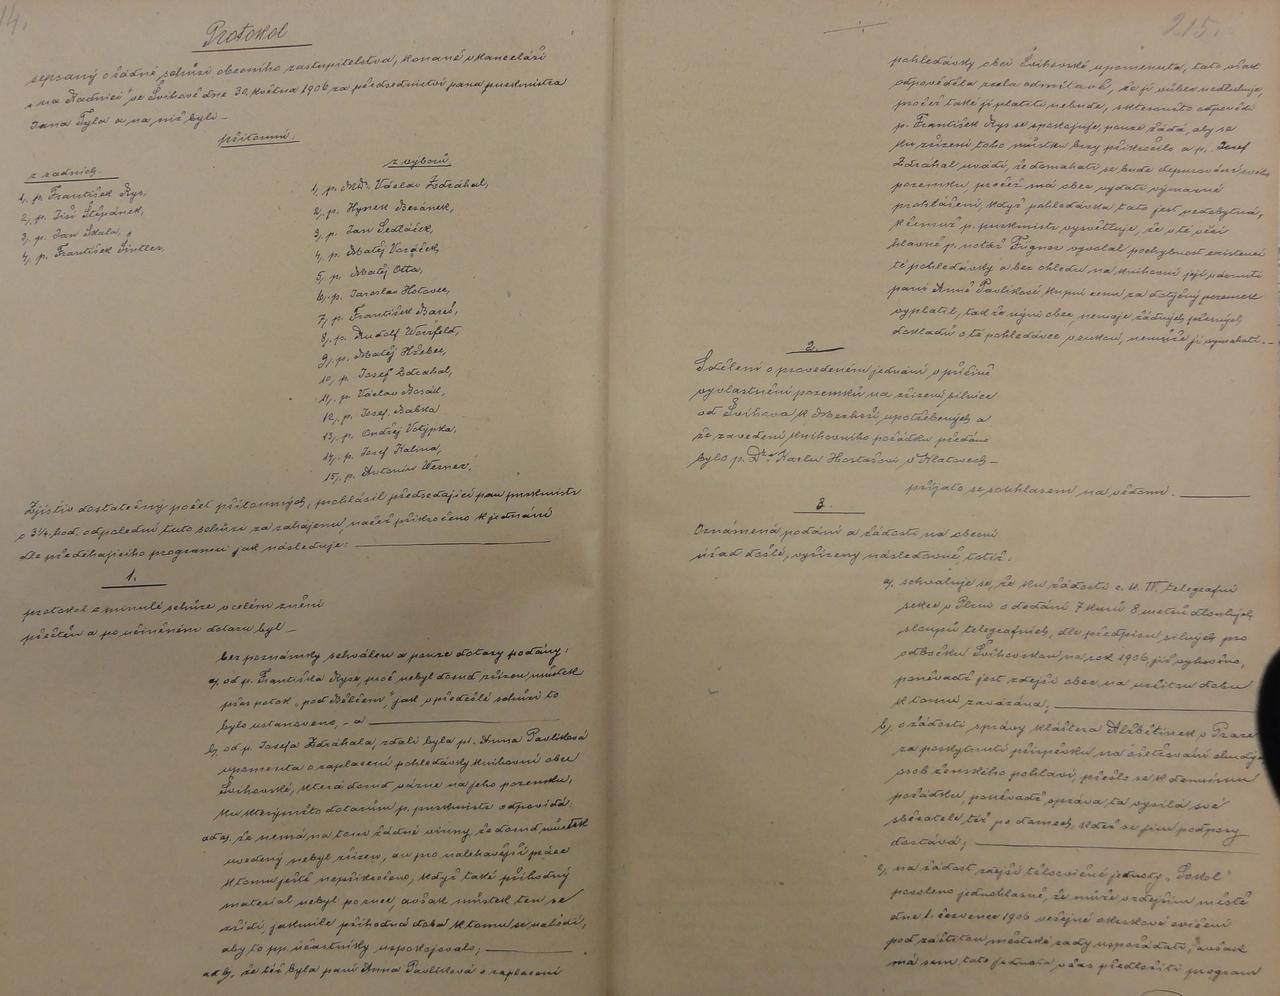 14.
Protokol
sepsaný o řádné schůzi obecního zastupitelstva, konané v kanceláři
„na Radnici" ve Švihově dne 30. května 1906 za předsednictví pana purkmistra
Jana Tyla a na níž byli –
přítomni:
z radních.
1, p. František Rys,
2, p. Jiří Štěpánek,
3, p. Jan Skala,
4, p. František Šintler,
z výborů,
1, p. MDr. Václav Zdráhal,
2, p. Hynek Beránek,
3, p. Jan Sedláček,
4, p. Matěj Voráček,
5, p. Matěj Otta,
6, p. Jaroslav Hotovec,
7, p. František Bareš,
8, p. Rudolf Worsfeld,
9, p. Matěj Hřebec,
10, p. Josef Zdráhal,
11, p. Václav Borád,
12, p. Josef Babka
13, p. Ondřej Votýpka,
14, p. Josef Kalina,
15, p. Antonín Werner,
Zjistiv dostatečný počet přítomných, prohlásil předsedající pan purkmistr
o 3¼ hod. odpolední tuto schůzi za zahájenu, načež přikročeno k jednání
dle předcházejícího programu jak následuje:
1.
protokol z minulé schůze v celém znění
přečten a po učiněném dotazu byl –
bez poznámky schválen a pouze dotazy podány:
a, od p. Františka Ryse, proč nebyl dosud zřízen můstek
přes potok „pod Běličem", jak v předešlé schůzi to
bylo ustanoveno, – a
b, od p. Josefa Zdráhala, zdali byla pí. Anna Pavlíková
upomenuta o zaplacení pohledávky knihovní obce
Švihovské, která dosud vázne na jeho pozemku;
ku kterýmžto dotazům p. purkmistr odpovídá:
ad a, že nemá na tom žádné viny, že dosud můstek
uvedený nebyl zřízen, an pro nalehavější práce
k tomu ještě nepřikročeno, když také příhodný
material nebyl po ruce, avšak můstek ten se
zřídí, jakmile příhodná doba k tomu se nalodí,
aby to pp. účastníky uspokojovalo;
ad b, že též byla paní Anna Pavlíková o zaplacení
215.
pohledávky obci Švihovské upomenuta, tato však
odpověděla zcela odmítavě, že jí vůbec nedluhuje,
pročež také jí platiti nebude, s kteroužto odpovědí
p. František Rys se spokojuje, pouze žádá, aby se
ku zřízení toho můstku brzy přikročilo a p. Josef
Zdráhal uvádí, že domáhati se bude depurování svého
pozemku, pročež má obec vydati výmazné
prohlášení, když pohledávka tato jest nedobytná,
k čemuž p. purkmistr vysvětluje, že v té věci
hlavně p. notář Fügner vyvolal pochybnost existencí
té pohledávky a bez ohledu na knihovní její váznutí
paní Anně Pavlíkové, kupní cenu za dotyčný pozemek
vyplatil, tak že nyní obec, nemajíc žádných přesných
dokladů o té pohledávce v rukou, nemůže jí vymáhati. –
2.
Sdělení o provedeném jednání v příčině
vyvlastnění pozemků na zřízení silnice
od Švihova k Mezholí upotřebených a
že zavedení knihovního pořádku předáno
bylo p. Dru Karlu Hostašovi v Klatovech –
přijato se souhlasem na vědomí.
3.
Oznámená podání a žádosti na obecní
úřad došlé, vyřízeny následovně, totiž:
a, schvaluje se, že ku žádosti c. k. IV. telegrafní
sekce v Plzni o dodání 7 kusů 8 metrů dlouhých
sloupů telegrafních, dle předpisu silných pro
odbočku Švihovskou na rok 1906, již vyhověno,
poněvadž jest zdejší obec na určitou dobu
k tomu zavázána;
b, o žádosti správy kláštera Alžbětinek v Praze
za poskytnutí příspěvku na ošetřování chudých
osob ženského pohlaví, přešlo se k dennímu
pořádku, poněvadž správa ta vysílá své
sběratele též po domech, kdež se jim podpory
dostává;
c, na žádost zdejší tělocvičné jednoty „Sokol"
povoleno jednohlasně, že může v zdejším městě
dne 1. července 1906 veřejné okrskové cvičení
pod záštitou městské rady uspořádati, avšak
má sem tato jednota včas předložiti program